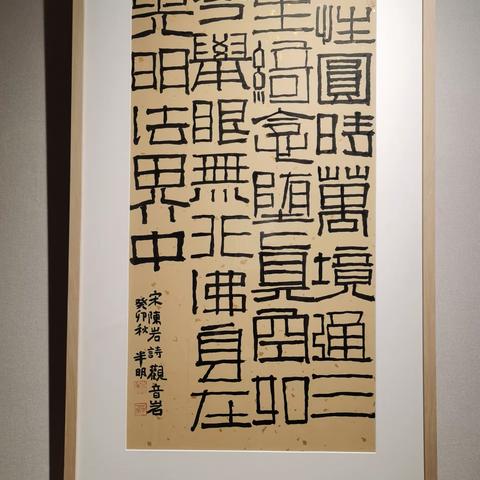 性圓時萬境通三
生綺念墮真空如
今舉眼無非佛身在
光明法界中
宋陳岩詩觀音岩
癸卯秋 半明